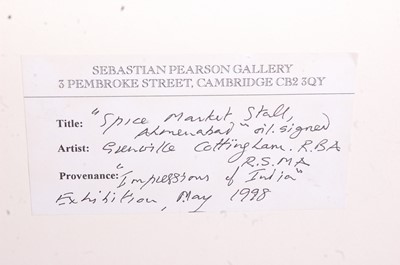 SEBASTIAN PEARSON GALLERY
3 PEMBROKE STREET, CAMBRIDGE CB2 3QY
Title: "Spice Market Stall,
Ahmenabad" oil. signed
Artist: Grenville Cottingham. RBA
R.S.M.A
Provenance: "Impressions of India"
Exhibition, May 1998